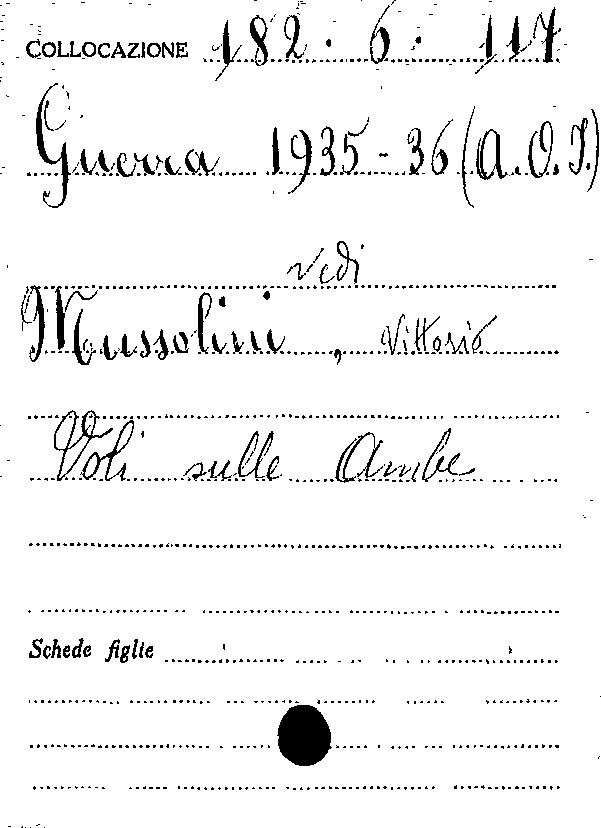 COLLOCAZIONE 182. 6. 117
Guerra 1935-36 (A.O.I.)
vedi
Mussolini, Vittorio
Voli sulle Ambe
Schede figlie